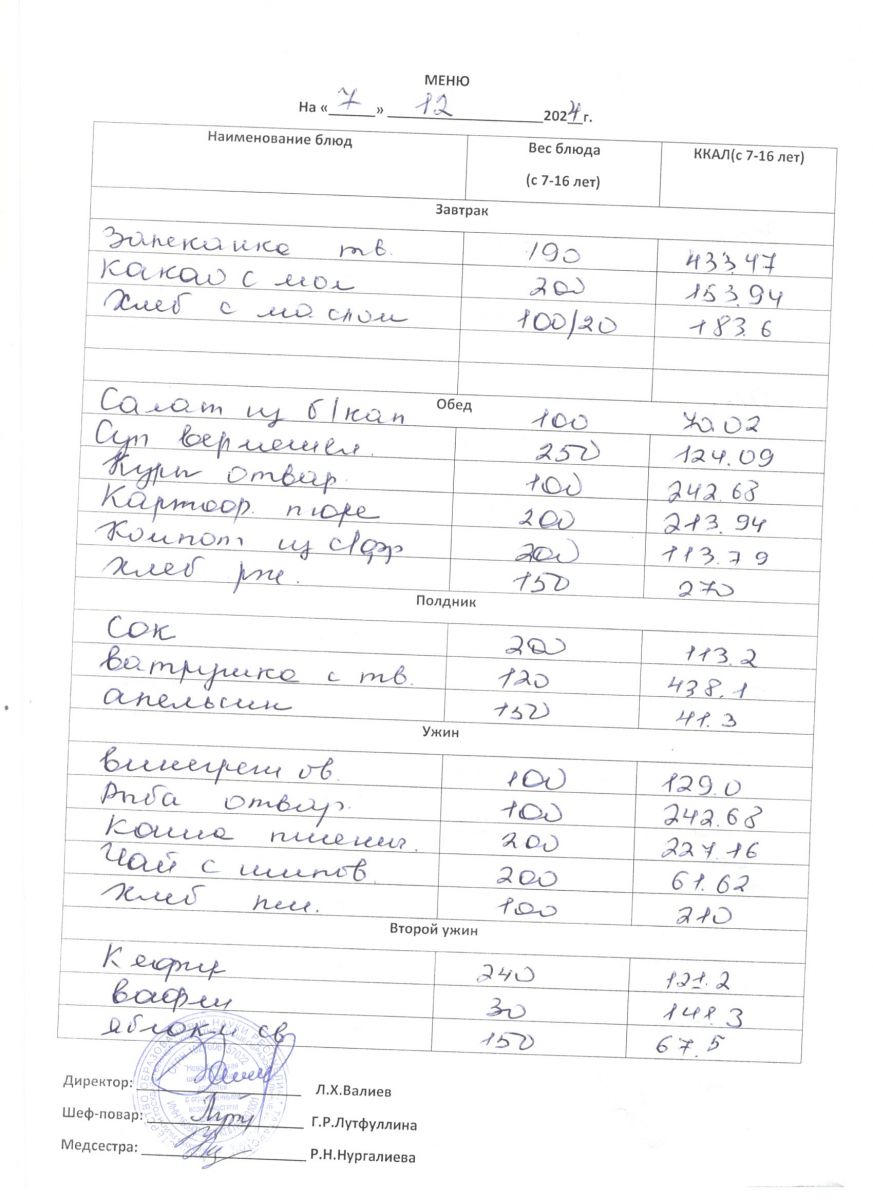 МЕНЮ
На «7» 12 2024 г.
Наименование блюд Вес блюда (с 7-16 лет) ККАЛ(с 7-16 лет)
Завтрак
Запеканка тв. 190 433.47
Какао с мол 200 153.94
Хлеб с маслом 100/20 183.6
Обед
Салат из б/кап 100 70.02
Суп вермешел. 250 124.09
Куры отвар. 100 242.68
Картоф. пюре 200 213.94
Компот из с/фр 200 113.79
Хлеб рж. 150 270
Полдник
Сок 200 113.2
ватрушка с тв. 120 438.1
апельсин 150 41.3
Ужин
винегрет ов. 100 129.0
Рыба отвар. 100 242.68
Каша пшенич. 200 227.16
Чай с шипов. 200 61.62
Хлеб пш. 100 210
Второй ужин
Кефир 240 121.2
вафли 30 141.3
яблоки св 150 67.5
Директор: Л.Х.Валиев
Шеф-повар: Г.Р.Лутфуллина
Медсестра: Р.Н.Нургалиева